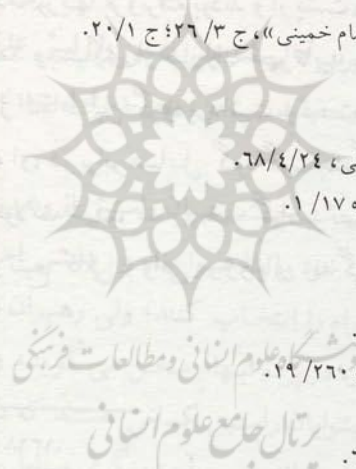 ام خمینی»، ج ۳/ ۲۶؛ ج ۲۰/۱.
ی، ۶۸/۴/۲۴.
ه ۱۷/ ۱.
پژوهشگاه علوم انسانی و مطالعات فرهنگی
۱۹/۲۶۰.
پرتال جامع علوم انسانی